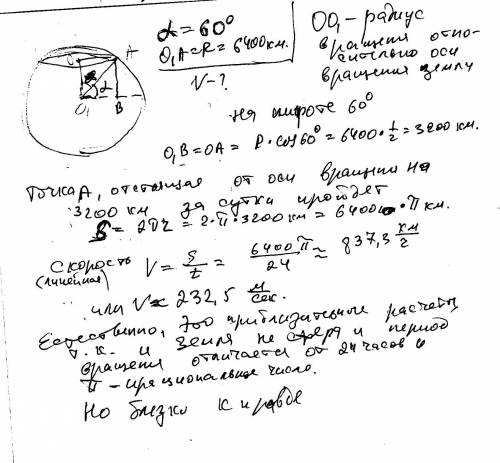 α = 60°
O₁A = R = 6400 км.
V - ?
OO₁ - радиус
вращения отно-
сительно оси
вращения земли
O A
α
O₁ B
на широте 60°
O₁B = OA = R · cos 60° = 6400 · 1/2 = 3200 км.
Точка A, отстоящая от оси вращения на
3200 км за сутки пройдет
S = 2πr = 2·π·3200 км = 6400 · π км.
Скорость V = S/t = 6400π/24 ≈ 837,3 км/г
(линейная)
или V ≈ 232,5 м/сек.
Естественно, это приблизительные расчеты,
т.к. и Земля не сфера и период
вращения отличается от 24 часов и
π - ирациональное число.
Но близко к правде